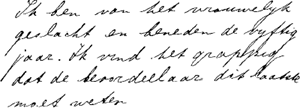 Ik ben van het vrouwelyk
geslacht en beneden de vyftig
jaar. Ik vind het grappig
dat de beoordeelaar dit laatste
moet weten